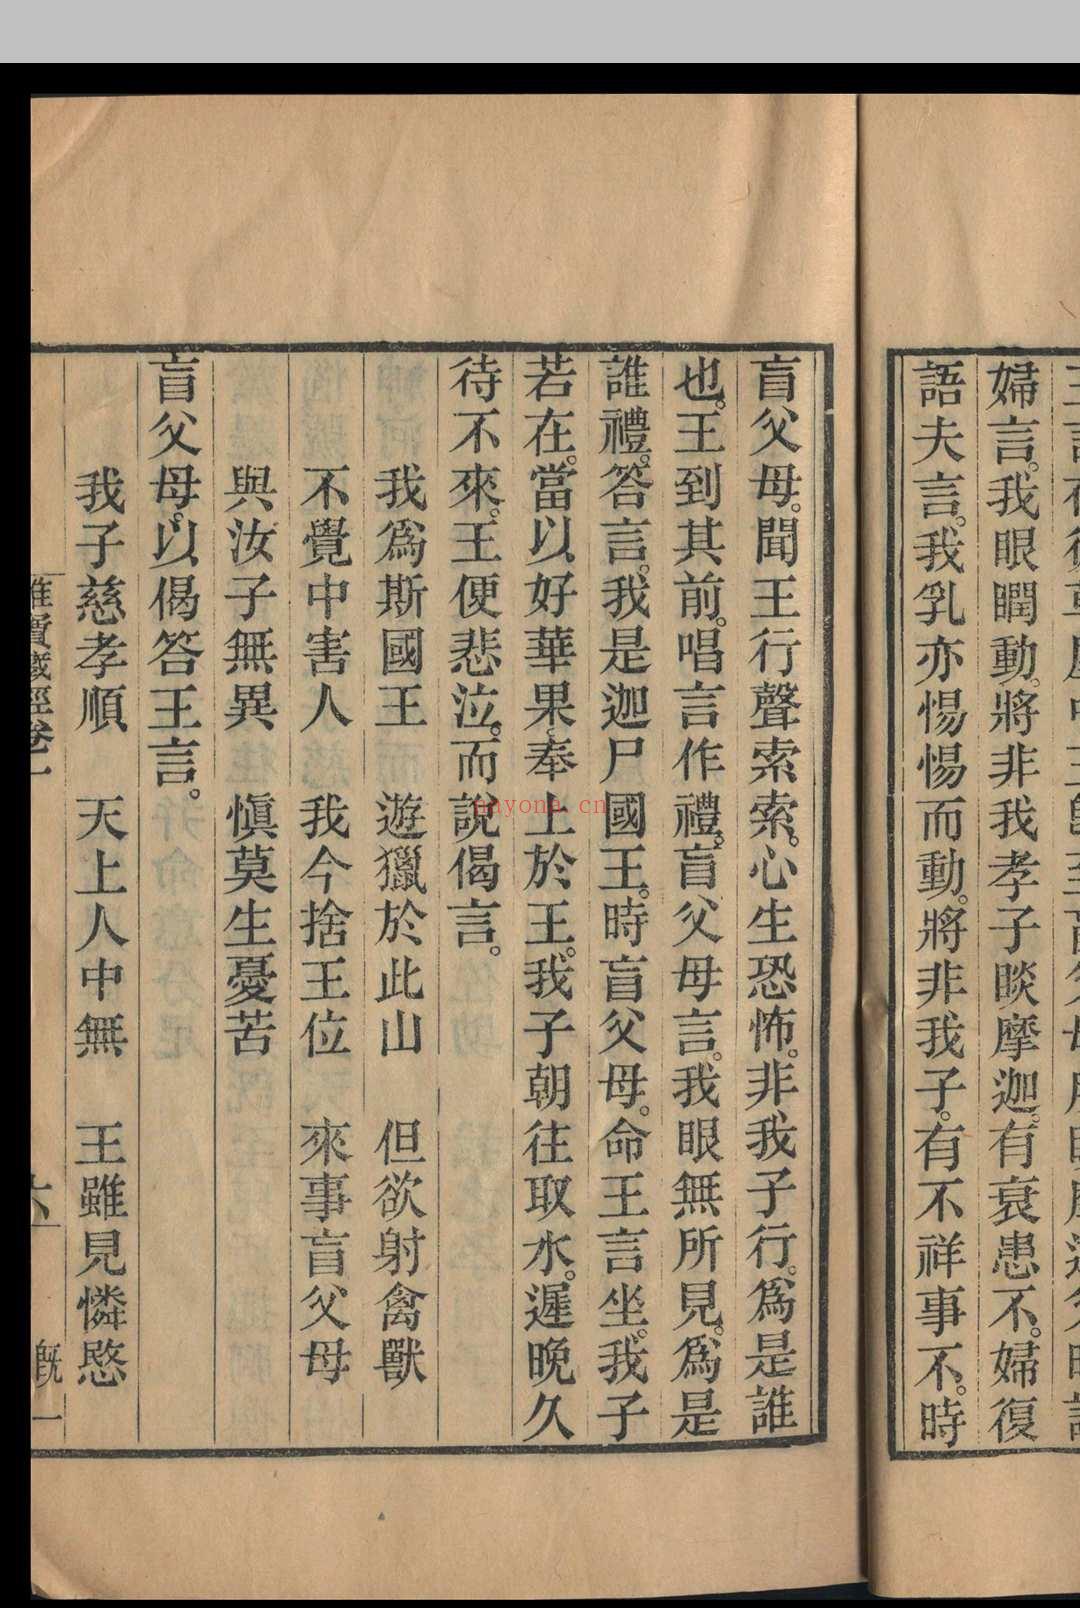 婦言。我眼瞤動。將非我孝子睒摩迦。有衰患不。婦復
語夫言。我乳亦惕惕而動。將非我子。有不祥事不。時
盲父母。聞王行聲索索。心生恐怖。非我子行。爲是誰
也。王到其前。唱言作禮。盲父母言。我眼無所見。爲是
誰禮。答言。我是迦尸國王。時盲父母。命王言坐。我子
若在。當以好華果。奉上於王。我子朝往取水。遲晚久
待不來。王便悲泣。而說偈言。
我爲斯國王　遊獵於此山　但欲射禽獸
不覺中害人　我今捨王位　來事盲父母
與汝子無異　愼莫生憂苦
盲父母。以偈答王言。
我子慈孝順　天上人中無　王雖見憐愍
雜寶藏經卷一　六　旣一
anyona.cn